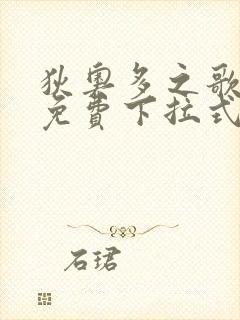 狄奥多之歌
免費下拉式
石珺